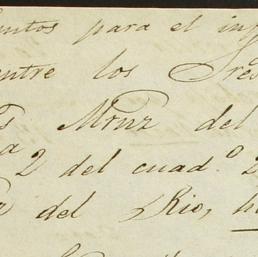 entos para el inf
entre los Sres
s Mruz del
a 2 del cuad.º 2
a del Rio,